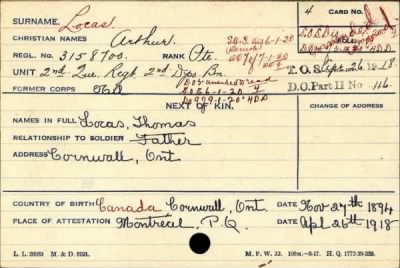 SURNAME. Locas. 4 CARD NO.
CHRISTIAN NAMES Arthur. S.O.S. 6-1-20
REGL. NO. 3158700. RANK Pte.
UNIT 2nd. Que. Regt. 2nd. Dep. Bn. T.O.S. Apr. 26. 1918
FORMER CORPS Nil D.O. Part II No. 116
NEXT OF KIN. CHANGE OF ADDRESS
NAMES IN FULL Locas, Thomas
RELATIONSHIP TO SOLDIER Father
ADDRESS Cornwall, Ont
COUNTRY OF BIRTH Canada Cornwall, Ont. DATE Nov 27th 1894
PLACE OF ATTESTATION Montreal, P.Q. DATE Apl 26th 1918
L. L. 26989 M. & D. 8121. M. F. W. 22. 100m.-8-17. H. Q. 1772-39-339.